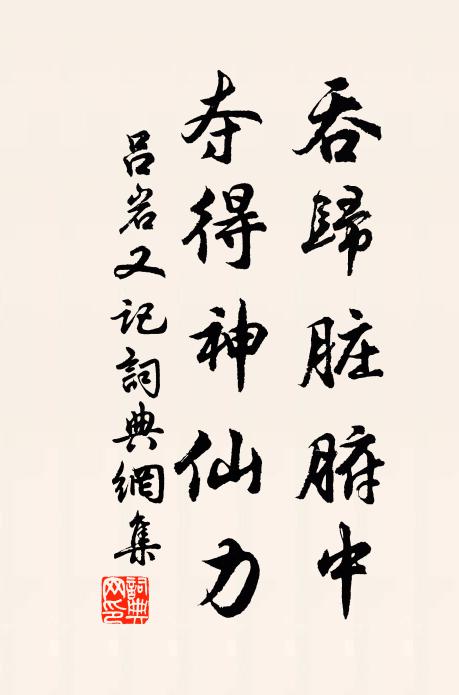 吞歸脏腑中
夺得神仙力
吕岩又记詞典網集
詞典网印